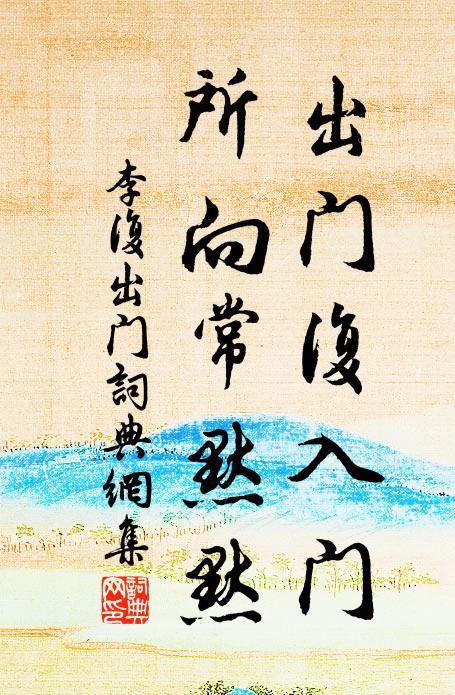 出门復入门
所向常黙黙
李復出门詞典網集
詞典网印